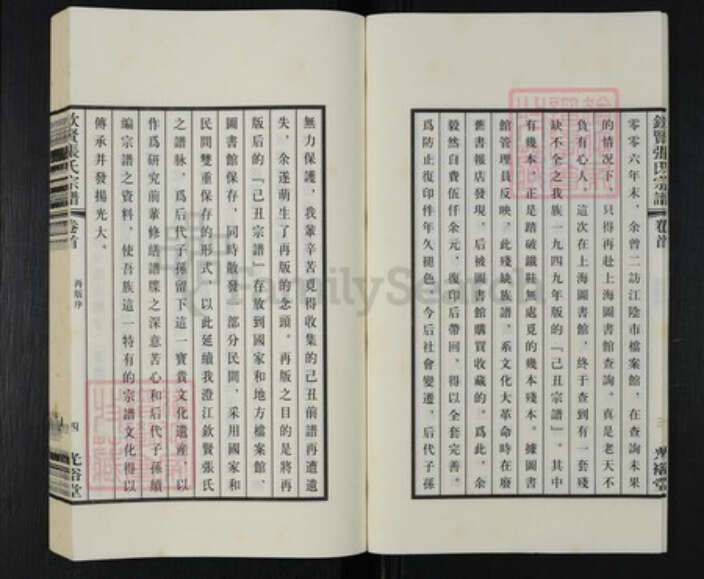 欽賢張氏宗譜
卷首
光裕堂
零零六年末，余曾二訪江陰市檔案館，在查詢未果
的情況下，只得再赴上海圖書館查詢。真是老天不
負有心人，這次在上海圖書館，終于查到有一套殘
缺不全之我族一九四九年版的『己丑宗譜』。其中
有幾本，正是踏破鐵鞋無處覓的幾本殘本。據圖書
館管理員反映，此殘缺族譜，系文化大革命時在廢
舊書報店發現，后被圖書館購買收藏的。爲此，余
毅然自費伍仟余元，復印后帶回，得以全套完善。
爲防止復印件年久褪色，今后社會變遷，后代子孫
無力保護，我輩辛苦覓得收集的己丑前譜再遭遺
失，余遂萌生了再版的念頭。再版之目的是將再
版后的『己丑宗譜』存放到國家和地方檔案館、
圖書館保存，同時散發一部分民間，采用國家和
民間雙重保存的形式，以此延續我澄江欽賢張氏
之譜脉，爲后代子孫留下這一寶貴文化遺産，以
作爲研究前輩修結譜牒之深意苦心和后代子孫續
編宗譜之資料，使吾族這一特有的宗譜文化得以
傳承并發揚光大。
欽賢張氏宗譜
卷首
再版序
四
光裕堂
FamilySearch